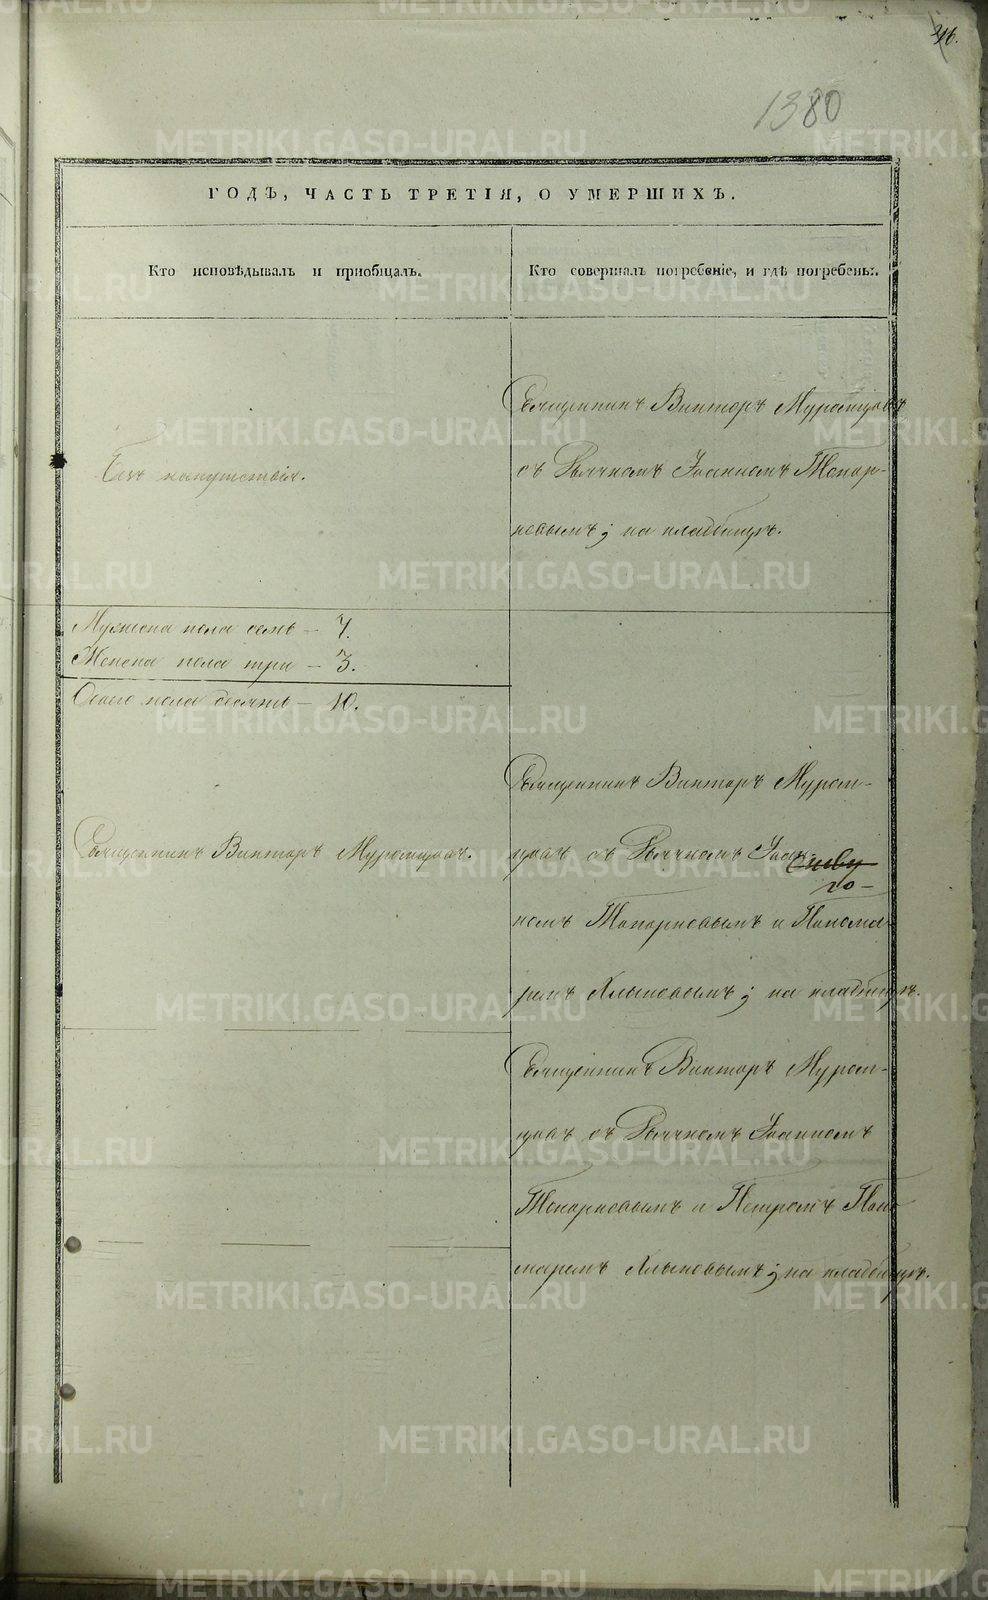 316.
1380
ГОДЪ, ЧАСТЬ ТРЕТІЯ, О УМЕРШИХЪ.
Кто исповѣдывалъ и пріобщалъ.
Кто совершалъ погребеніе, и гдѣ погребены.
Безъ напутствія.
Священникъ Викторъ Муромцовъ
съ Дьячкомъ Іоанномъ Топор-
ковымъ; на кладбищѣ.
Мужеска пола семь – 7.
Женска пола три – 3.
Обоего пола десять – 10.
Священникъ Викторъ Муромцовъ.
Священникъ Викторъ Муром-
цовъ съ Дьячкомъ Іоан-
номъ Топорковымъ и Понома-
ремъ Хлыновымъ; на кладбищѣ.
Священникъ Викторъ Муром-
цовъ съ Дьячкомъ Іоанномъ
Топорковымъ и Петромъ Поно
маремъ Хлыновымъ; на кладбищѣ.
METRIKI.GASO-URAL.RU